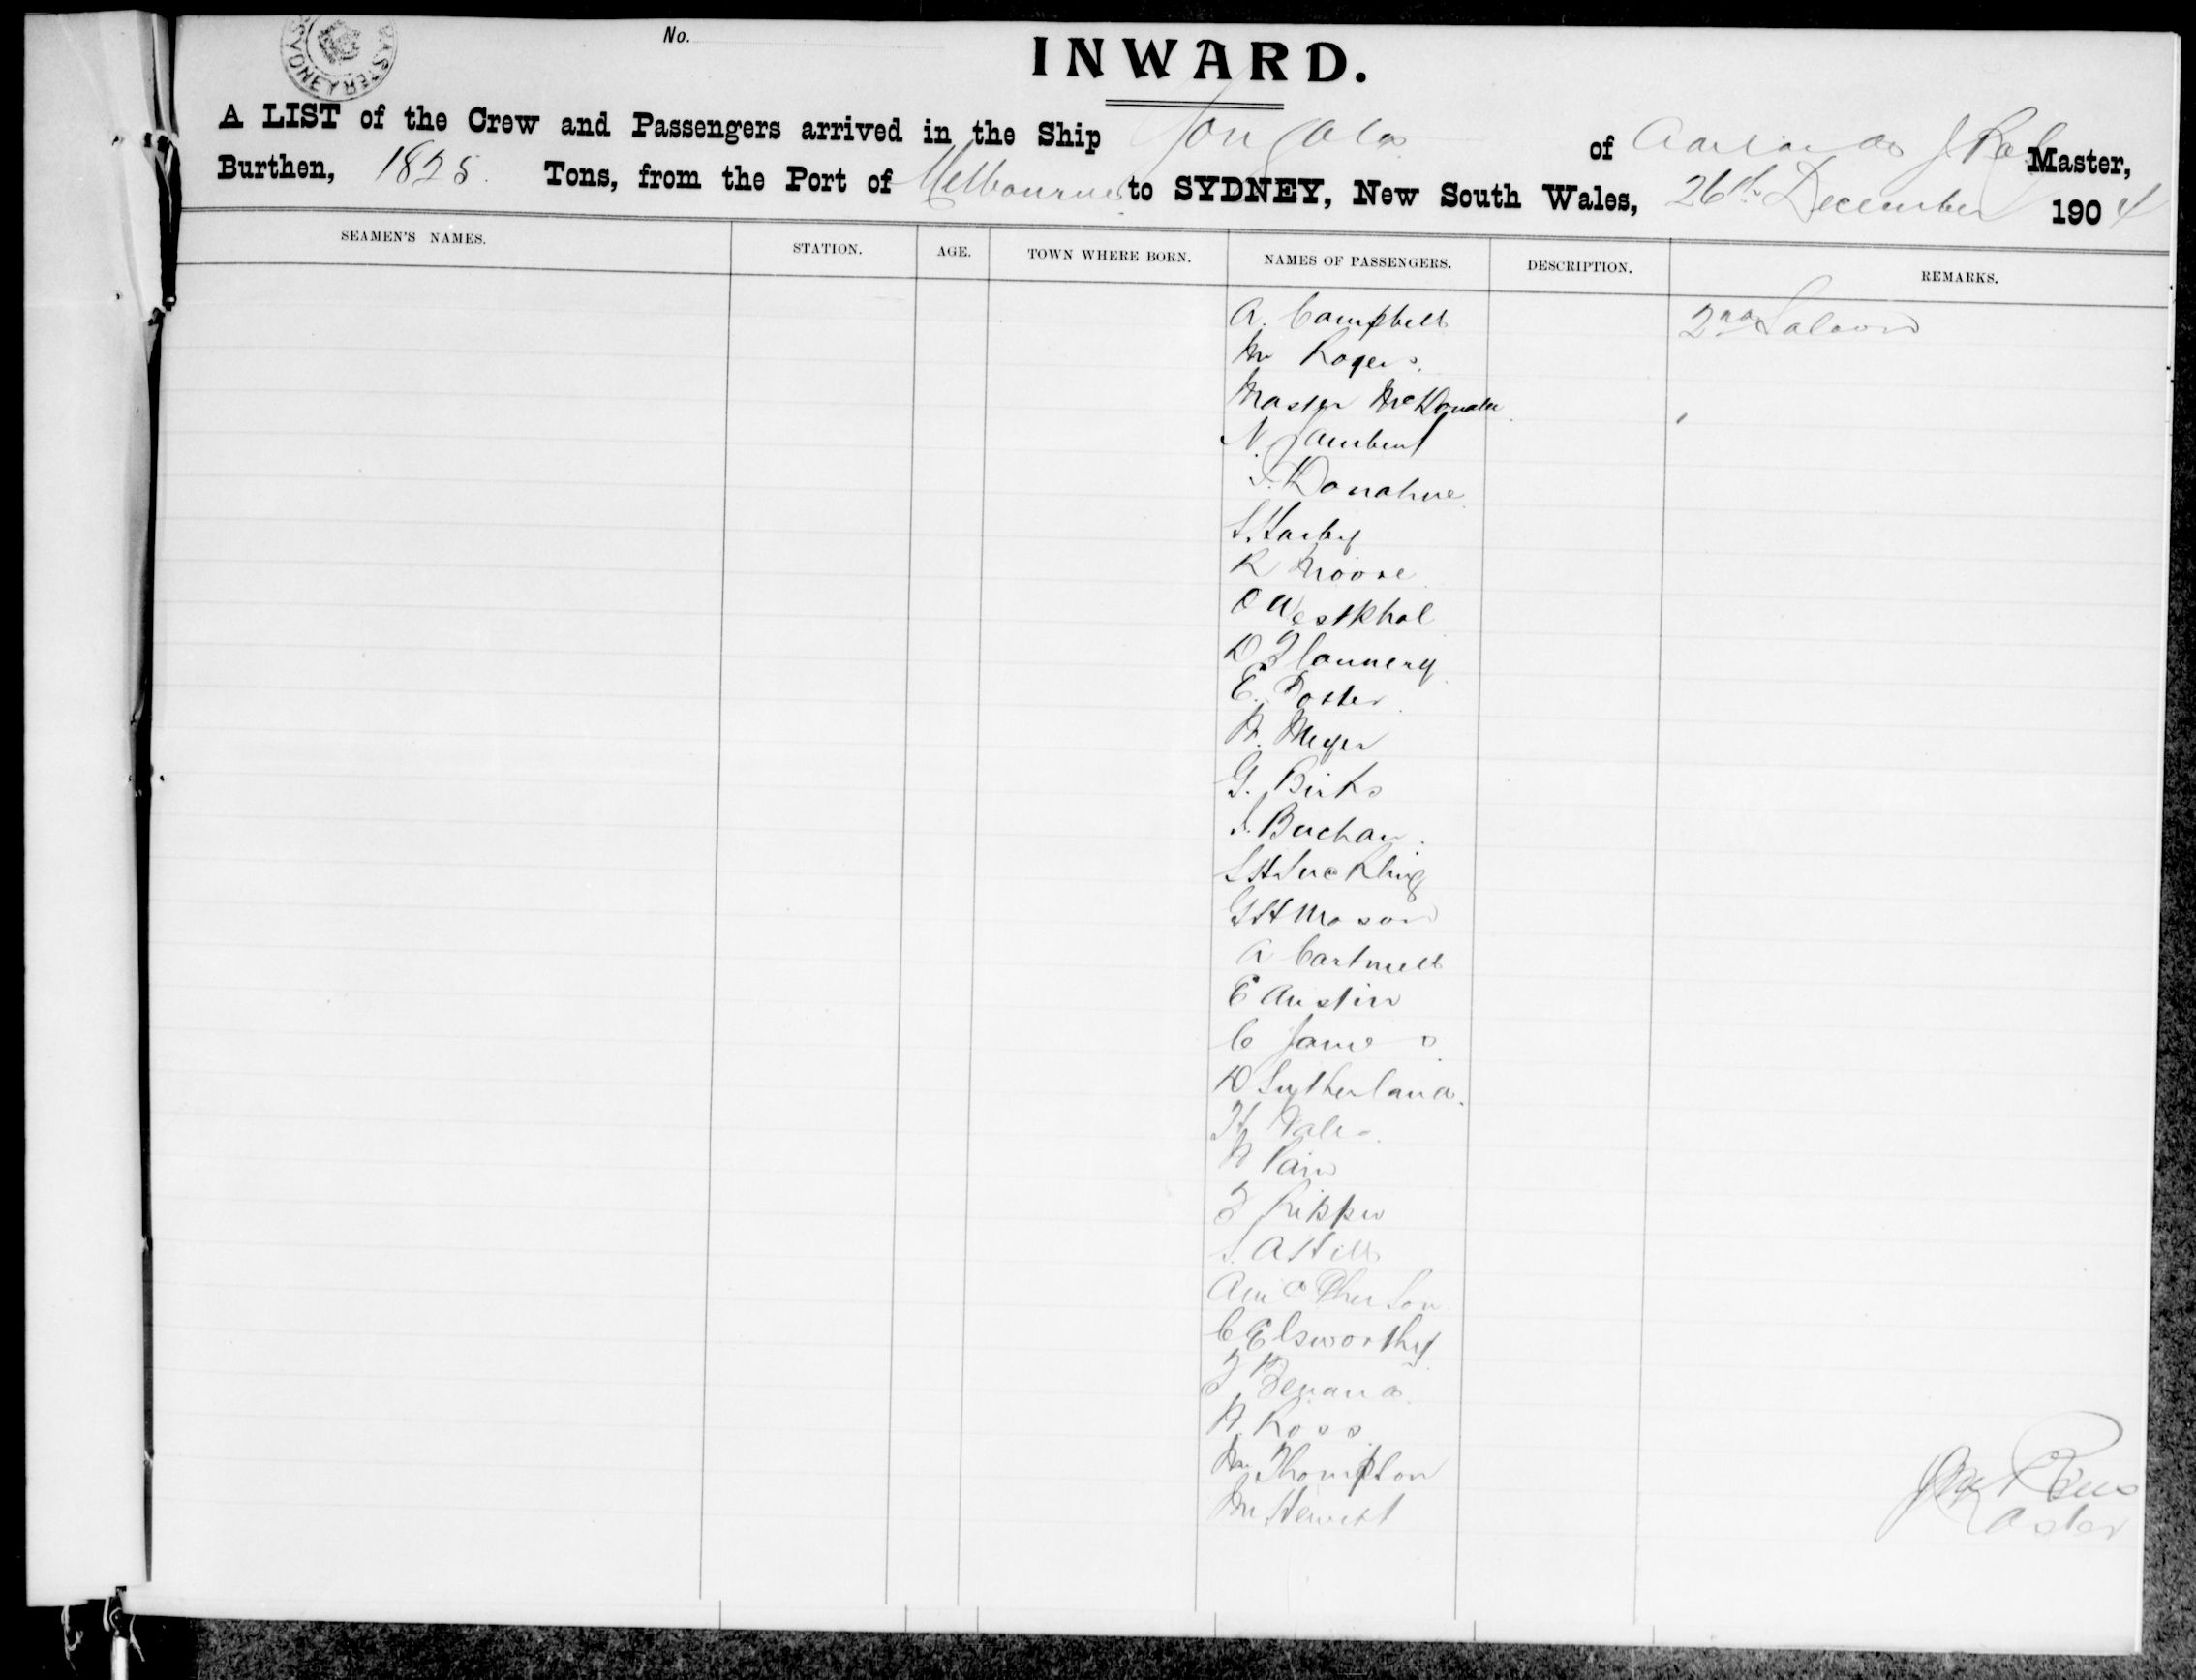 SYDNEY
No.
INWARD.
A LIST of the Crew and Passengers arrived in the Ship Yongala of Adelaide J Master,
Burthen, 1825 Tons, from the Port of Melbourne to SYDNEY, New South Wales, 26th December 1904
SEAMEN'S NAMES. STATION. AGE. TOWN WHERE BORN. NAMES OF PASSENGERS. DESCRIPTION. REMARKS.
A. Campbell 2nd Saloon
Mr Rogers.
Master McDonald
N. Jambert
T. Donahue
S. Harby
R Moore
O Westphal
D Flannery
E. Foster
H. Meyer
G. Birks
J. Buchan
S H Suckling
G H Mason
A Cartmell
E Austin
C James
D Sutherland.
H
H Pain
F
S. A Hill
A McPherson
C Elsworthy
F
H Ross
Mr Thompson
Mr Hewitt